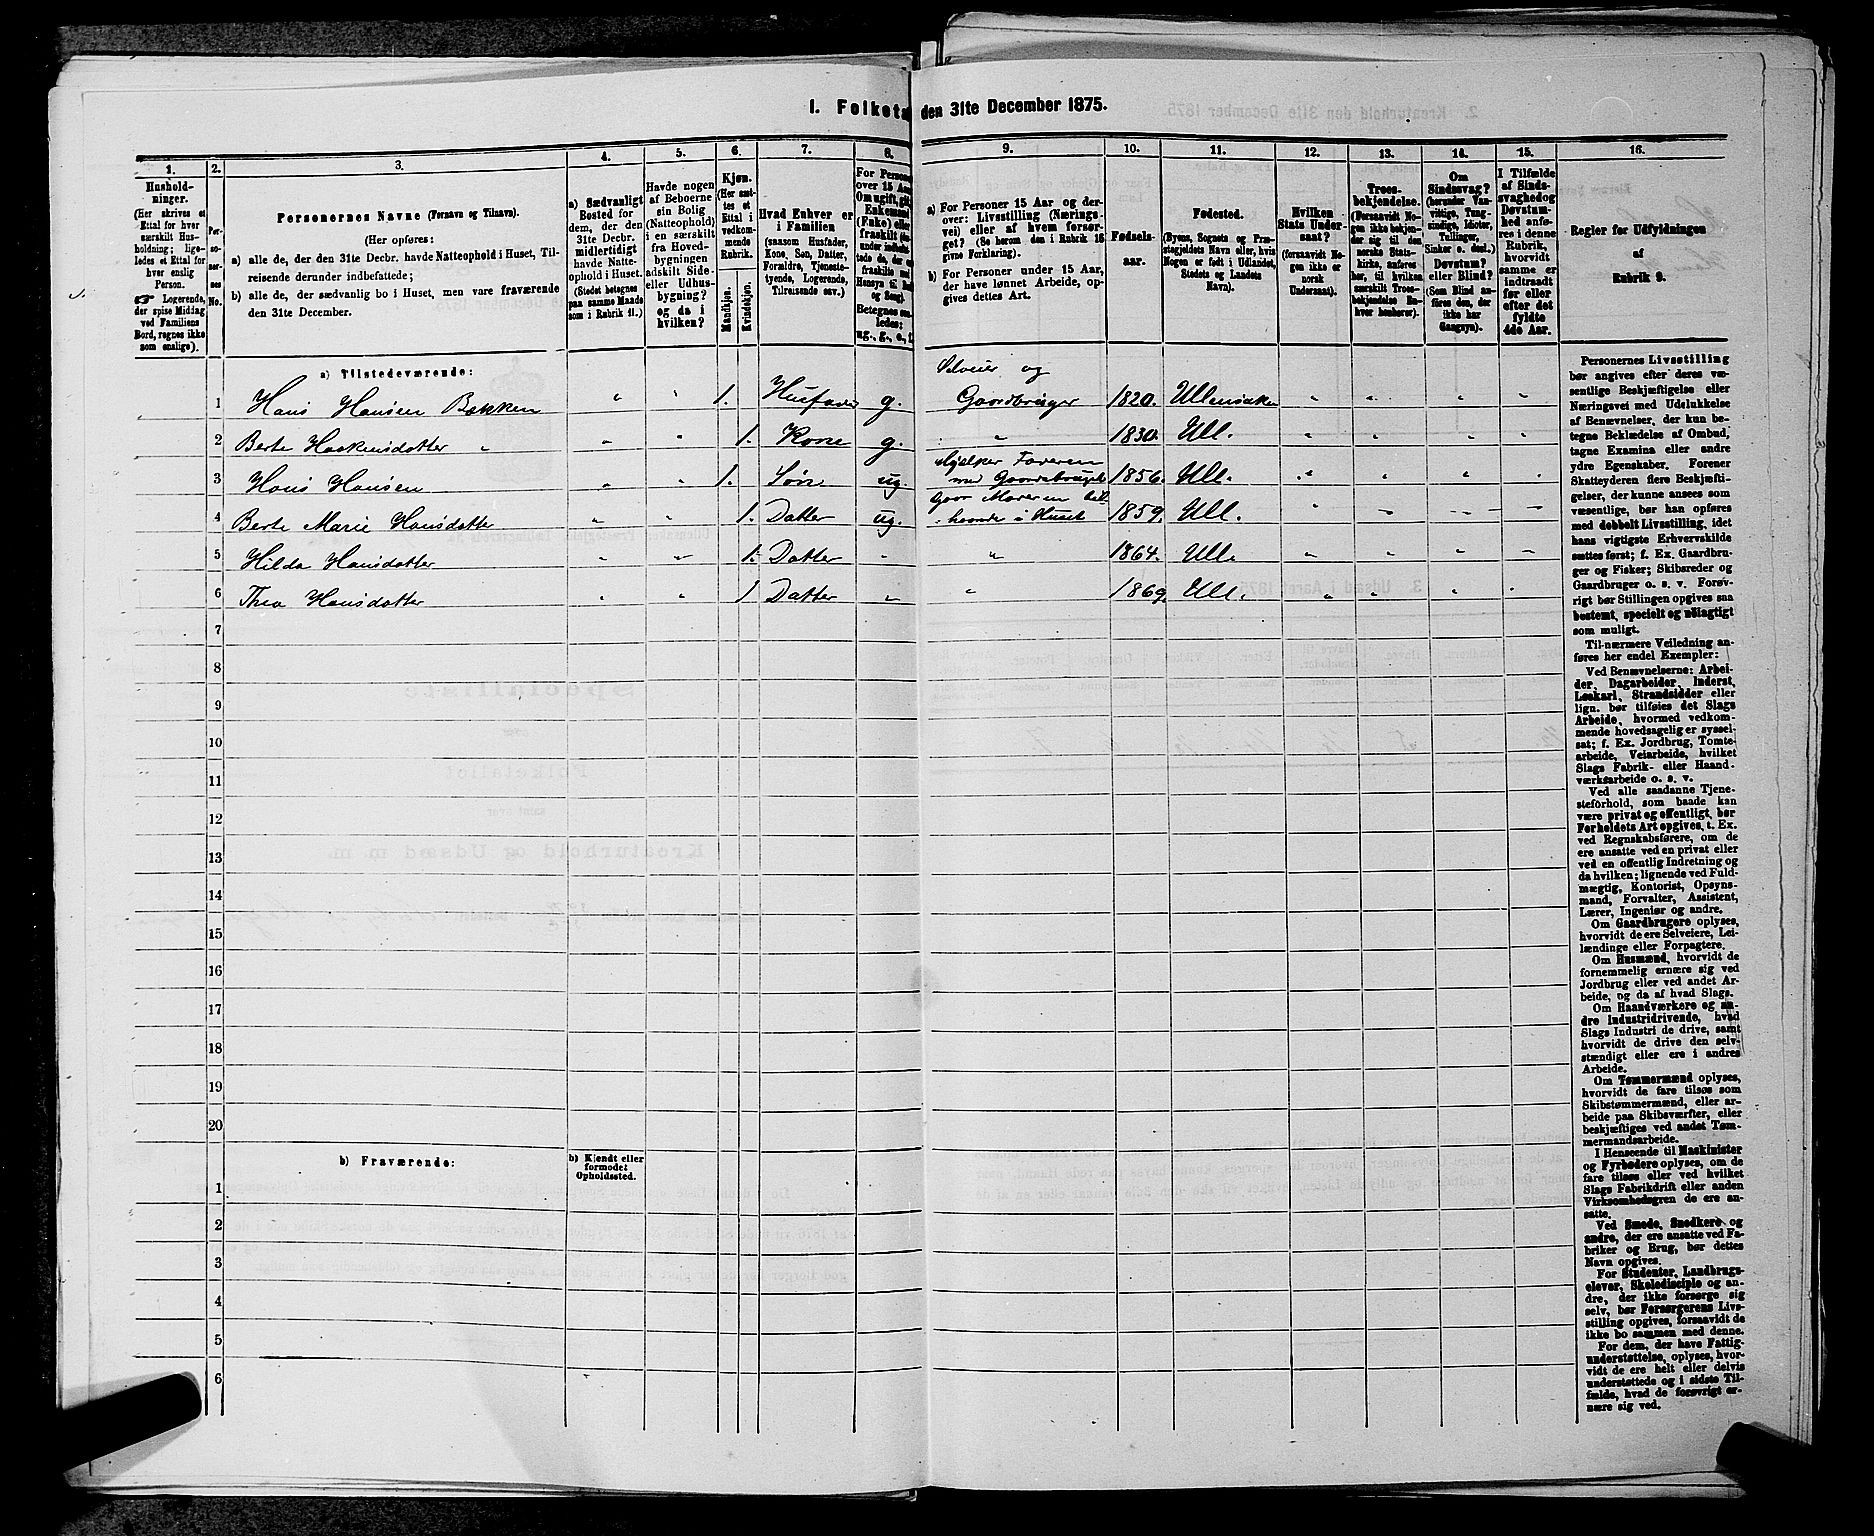 I. Folketal den 31te December 1875.
1. 2. 3. 4. 5. 6. 7. 8. 9. 10. 11. 12. 13. 14. 15. 16.
Hushold-
ninger.
(Her skrives et
Ettal for hver
særskilt Hus-
holdning; lige-
ledes et Ettal for
hver enslig
Person.
☞ Logerende,
der spise Middag
ved Familiens
Bord, regnes ikke
som enslige).
Per-
soner-
nes
No.
Personernes Navne (Fornavn og Tilnavn).
(Her opføres:
a) alle de, der den 31te Decbr. havde Natteophold i Huset, Til-
reisende derunder indbefattede;
b) alle de, der sædvanlig bo i Huset, men vare fraværende
den 31te December.
a) Sædvanligt
Bosted for
dem, der den
31te Decbr.
midlertidigt
havde Natte-
ophold i Huset.
(Stedet betegnes
paa samme Maade
som i Rubrik 11.)
Havde nogen
af Beboerne
sin Bolig
(Natteophold)
i en særskilt
fra Hoved-
bygningen
adskilt Side-
eller Udhus-
bygning?
og da i
hvilken?
Kjøn.
(Her sæt-
tes et
Ettal i
vedkom-
mende
Rubrik.
Mandkjøn.
Kvindekjøn.
Hvad Enhver er
i Familien
(saasom Husfader,
Kone, Søn, Datter,
Forældre, Tjeneste-
tyende, Logerende,
Tilreisende osv.)
For Personer
over 15 Aar:
Om ugift, gift,
Enkemand
(Enke) eller
fraskilt
Betegnes saa-
ledes:
ug., g., e., f.
a) For Personer 15 Aar og der-
over: Livsstilling (Nærings-
vei) eller af hvem forsør-
get? (Se herom den i Rubrik 16
givne Forklaring).
b) For Personer under 15 Aar,
der have lønnet Arbeide, op-
gives dettes Art.
Fødsels-
aar.
Fødested.
(Byens, Sognets og Præ-
stegjeldets Navn eller, hvis
Nogen er født i Udlandet,
Stedets og Landets
Navn).
Hvilken
Stats Under-
saat?
(forsaavidt No-
gen ikke er
norsk
Undersaat).
Troes-
bekjendelse.
(Forsaavidt No-
gen ikke bekjen-
der sig til den
norske Stats-
kirke, anføres
her, til hvilken
særskilt Troes-
bekjendelse En-
hver henhører).
Om
Sindssvag?
(herunder Van-
vittige, Tung-
sindige, Idioter,
Tullinger,
Sinker o. desl.)
Døvstum?
eller Blind?
(Som Blind an-
føres den, der
ikke har
Gangsyn).
I Tilfælde
af Sinds-
svaghed og
Døvstum-
hed anfø-
res i denne
Rubrik,
hvorvidt
samme er
indtraadt
før eller
efter det
fyldte
4de Aar.
Regler for Udfyldningen
af
Rubrik 9.
a) Tilstedeværende:
1 Hans Hansen Bakken " " 1. Husfader g. Selveier og Gaardbruger 1820. Ullensaker " " " "
2 Berte Haakensdatter " " " 1. Kone g. " 1830. Ull. " " " "
3 Hans Hansen " " 1. Søn ug. Hjælper Faderen med Gaardsbruget 1856. Ull. " " " "
4 Berte Marie Hansdatter " " 1. Datter ug. Gaar Moderen til haande i Huset 1859. Ull. " " " "
5 Hilda Hansdatter " " 1. Datter " " 1864. Ull. " " " "
6 Thea Hansdatter " " 1 Datter " " 1869. Ull. " " " "
7
8
9
10
11
12
13
14
15
16
17
18
19
20
b) Fraværende:
b) Kjendt eller
formodet
Opholdssted.
1
2
3
4
5
6
Personernes Livsstilling
bør angives efter deres væ-
sentlige Beskjæftigelse eller
Næringsvei med Udelukkelse
af Benævnelser, der kun be-
tegne Beklædelse af Ombud,
tagne Examina eller andre
ydre Egenskaber. Forener
Skatteyderen flere Beskjæfti-
gelser, der kunne ansees som
væsentlige, bør han opføres
med dobbelt Livsstilling, idet
hans vigtigste Erhvervskilde
sættes først; f. Ex. Gaardbru-
ger og Fisker; Skibsreder og
Gaardbruger o. s. v. Forøv-
rigt bør Stillingen opgives saa
bestemt, specielt og nøiagtigt
som muligt.
Til nærmere Veiledning an-
føres her endel Exempler:
Ved Benævnelserne: Arbei-
der, Dagarbeider, Inderst,
Løskarl, Strandsidder eller
lign. bør tilføies det Slags
Arbeide, hvormed vedkom-
mende hovedsagelig er syssel-
sat; f. Ex. Jordbrug, Tomte-
arbeide, Veiarbeide, hvilket
Slags Fabrik- eller Haand-
værksarbeide o. s. v.
Ved alle saadanne Tjene-
steforhold, som baade kan
være privat og offentligt, bør
Forholdets Art opgives, t. Ex.
ved Regnskabsførere, om de
ere ansatte ved en privat eller
ved en offentlig Indretning og
da hvilken; lignende ved Fuld-
mægtig, Kontorist, Opsyns-
mand, Forvalter, Assistent,
Lærer, Ingeniør og andre.
Om Gaardbrugere oplyses,
hvorvidt de ere Selveiere, Lei-
lændinge eller Forpagtere.
Om Husmænd, hvorvidt de
fornemmelig ernære sig ved
Jordbrug eller ved andet Ar-
beide, og da af hvad Slags.
Om Haandværkere og an-
dre Industridrivende, hvad
Slags Industri de drive, samt
hvorvidt de drive den selv-
stændigt eller ere i andres
Arbeide.
Om Tømmermænd oplyses,
hvorvidt de fare tilsøs som
Skibstømmermænd, eller ar-
beide paa Skibsværfter, eller
beskjæftiges ved andet Tøm-
mermandsarbeide.
I Henseende til Maskinister
og Fyrbødere oplyses, om de
fare tilsøs eller ved hvilket
Slags Fabrikdrift eller anden
Virksomhedsgren de ere an-
satte.
Ved Smede, Snedkere og
andre, der ere ansatte ved Fa-
briker og Brug, bør dettes
Navn opgives.
For Studenter, Landbrugs-
elever, Skoledisciple og an-
dre, der ikke forsørge sig
selv, bør Forsørgerens Livs-
stilling opgives, forsaavidt de
ikke bo sammen med denne.
For dem, der have Fattig-
understøttelse, oplyses, hvor-
vidt de ere helt eller delvis
understøttede og i sidste Til-
fælde, hvad de forøvrigt er-
nære sig ved.